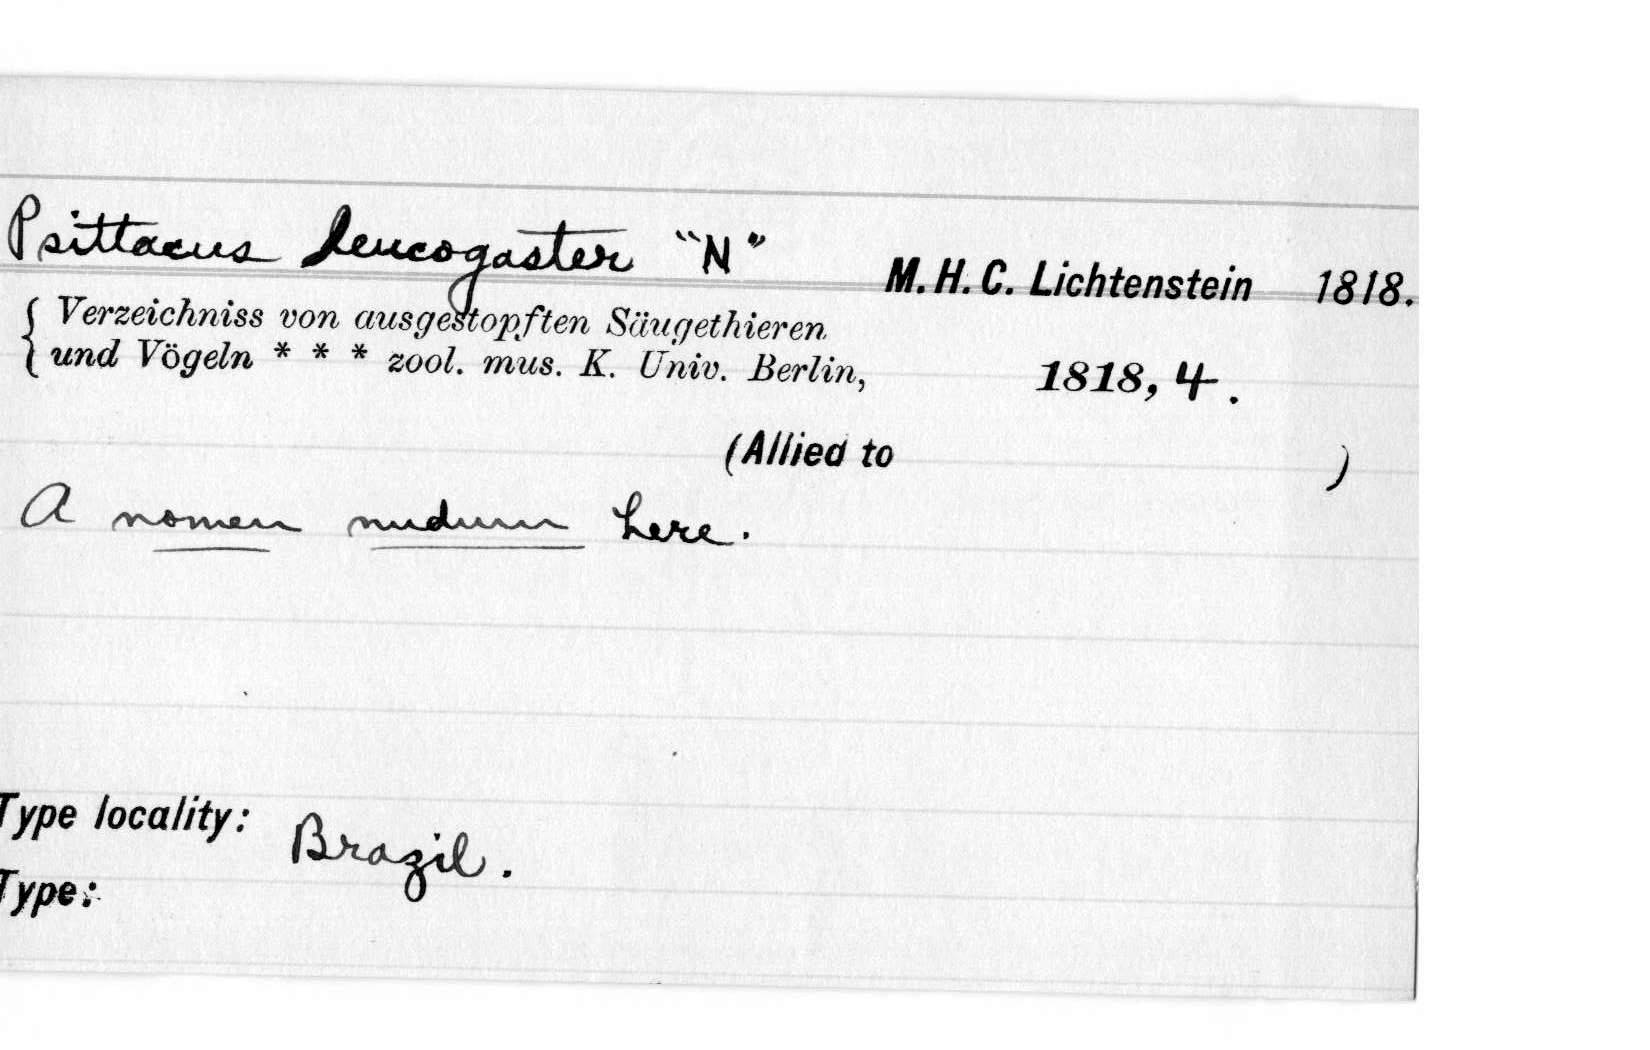 Psittacus leucogaster "N" M. H. C. Lichtenstein 1818.
{ Verzeichniss von ausgestopften Säugethieren
und Vögeln * * * zool. mus. K. Univ. Berlin, 1818, 4.
(Allied to )
A nomen nudum here.
Type locality: Brazil.
Type: